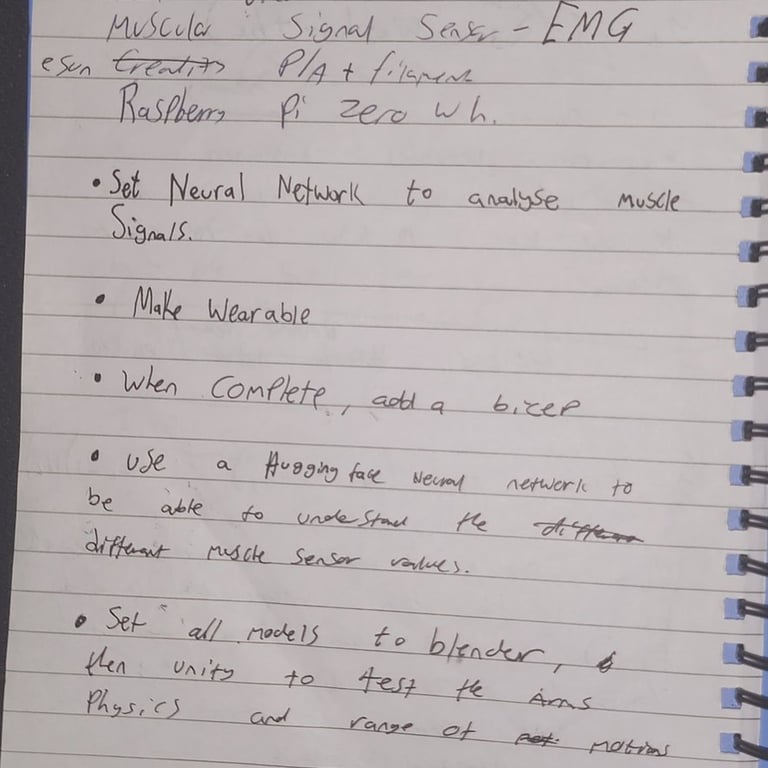 Muscular Signal Sensor - EMG
esun Creality PLA + filament
Raspberry Pi zero w h.
• Set Neural Network to analyse muscle
Signals.
• Make Wearable
• When Complete, add a bicep
• Use a Hugging face neural network to
be able to understand the differen
different muscle sensor values.
• Set all models to blender,
then unity to test the arms
Physics and range of motions